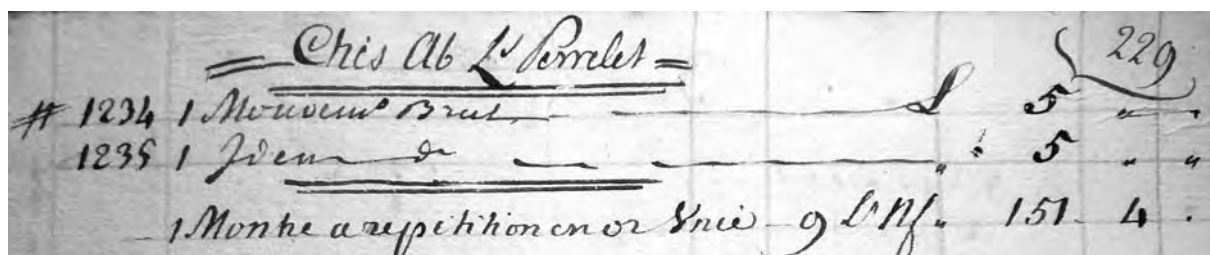 = Chés Ab Ls Perrelet =
229
# 1234 1 Mouvemt Brut — L 5 " "
1235 1 Idem do — " " 5 " "
1 Montre a repétition en or Unie 9 151 4 .